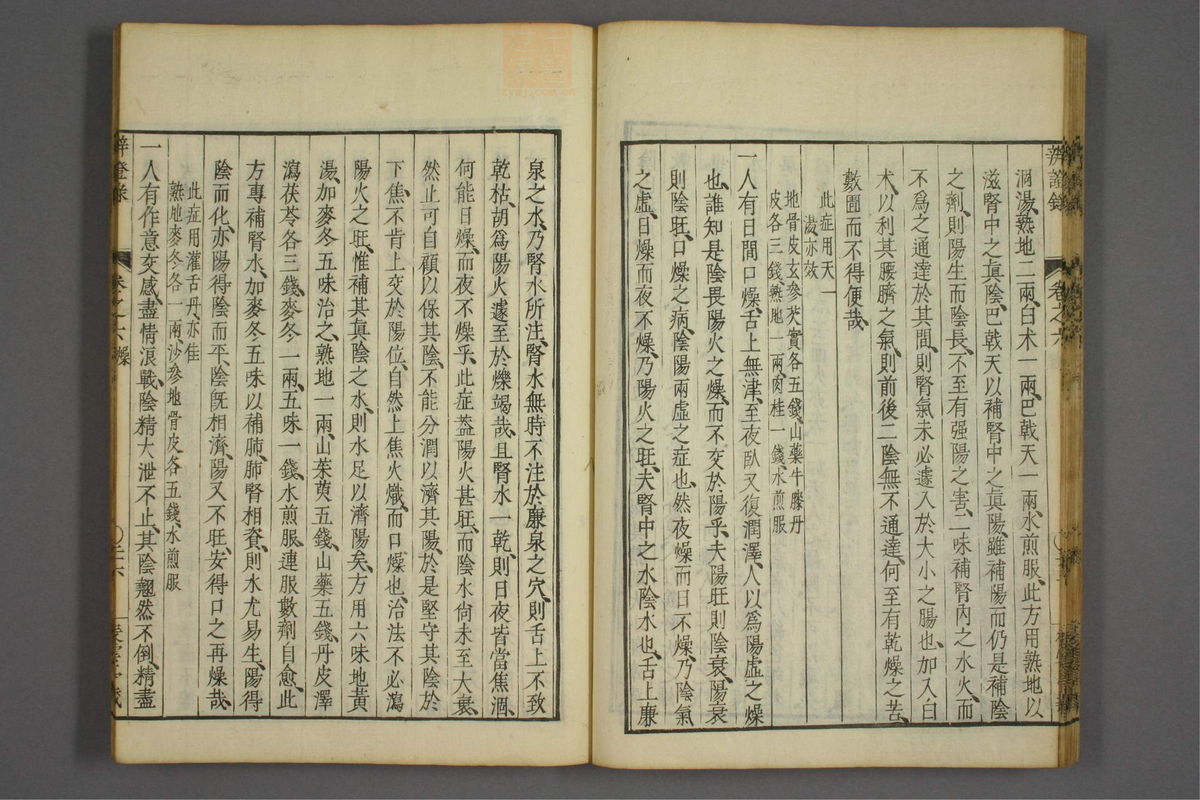 辨證錄
卷之六
洞湯熟地二兩白术一兩巴戟天一兩水煎服此方用熟地以
滋腎中之眞陰巴戟天以補腎中之眞陽雖補陽而仍是補陰
之劑則陽生而陰長不至有强陽之害二味補腎內之水火而
不爲之通達於其間則腎氣未必遽入於大小之腸也加入白
术以利其腰臍之氣則前後二陰無不通達何至有乾燥之苦
數圊而不得便哉
此症用天一
湯亦效
地骨皮玄參芡實各五錢山藥牛膝丹
皮各三錢熟地一兩肉桂一錢水煎服
一人有日間口燥舌上無津至夜臥又復潤澤人以爲陽虛之燥
也誰知是陰畏陽火之燥而不交於陽乎夫陽旺則陰衰陽衰
則陰旺口燥之病陰陽兩虛之症也然夜燥而日不燥乃陰氣
之虛日燥而夜不燥乃陽火之旺夫腎中之水陰水也舌上廉
泉之水乃腎水所注腎水無時不注於廉泉之穴則舌上不致
乾枯胡爲陽火遽至於爍竭哉且腎水一乾則日夜皆當焦涸
何能日燥而夜不燥乎此症葢陽火甚旺而陰水尙未至大衰
然止可自顧以保其陰不能分潤以濟其陽於是堅守其陰於
下焦不肯上交於陽位自然上焦火熾而口燥也治法不必瀉
陽火之旺惟補其眞陰之水則水足以濟陽矣方用六味地黃
湯加麥冬五味治之熟地一兩山茱萸五錢山藥五錢丹皮澤
瀉茯苓各三錢麥冬一兩五味一錢水煎服連服數劑自愈此
方專補腎水加麥冬五味以補肺肺腎相資則水尤易生陽得
陰而化亦陽得陰而平陰旣相濟陽又不旺安得口之再燥哉
此症用灌舌丹亦佳
熟地麥冬各一兩沙參地骨皮各五錢水煎服
一人有作意交感盡情浪戰陰精大泄不止其陰翹然不倒精盡
辨證錄
卷之六 燥